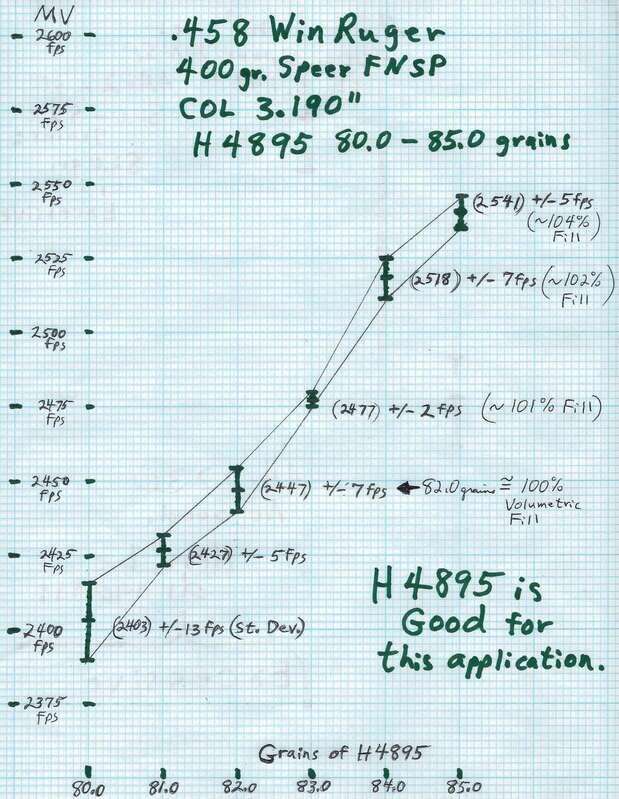 MV
2600 fps
.458 Win Ruger
400 gr. Speer FNSP
COL 3.190"
H4895 80.0 - 85.0 grains
2575 fps
2550 fps
(2541) +/- 5 fps
(~104% Fill)
2525 fps
(2518) +/- 7 fps (~102% Fill)
2500 fps
2475 fps
(2477) +/- 2 fps (~101% Fill)
2450 fps
(2447) +/- 7 fps ← 82.0 grains ≅ 100%
Volumetric
Fill
2425 fps
(2427) +/- 5 fps
H4895 is
Good for
this application.
2400 fps
(2403) +/- 13 fps (St. Dev.)
2375 fps
Grains of H4895
80.0 81.0 82.0 83.0 84.0 85.0